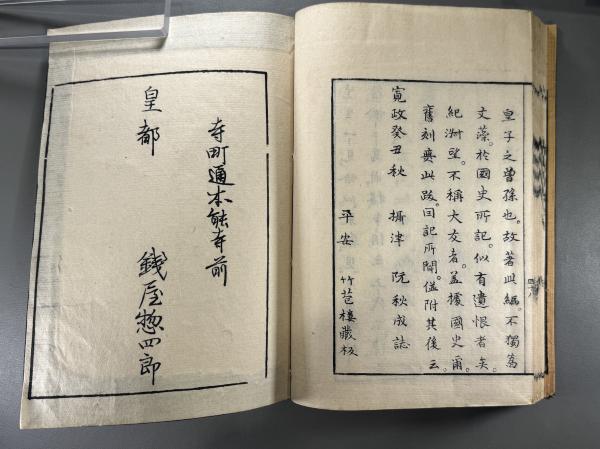 皇子之曽孫也。故著此編。不獨篤
文藻。於國史所記。似有遺恨者矣。
紀淑望。不稱大友者。蓋據國史爾。
舊刻無此跋。囙記所聞。併附其後云。
寛政癸丑秋 攝津 阮秋成誌
平安 竹苞樓藏板
寺町通本能寺前
皇都 錢屋惣四郎